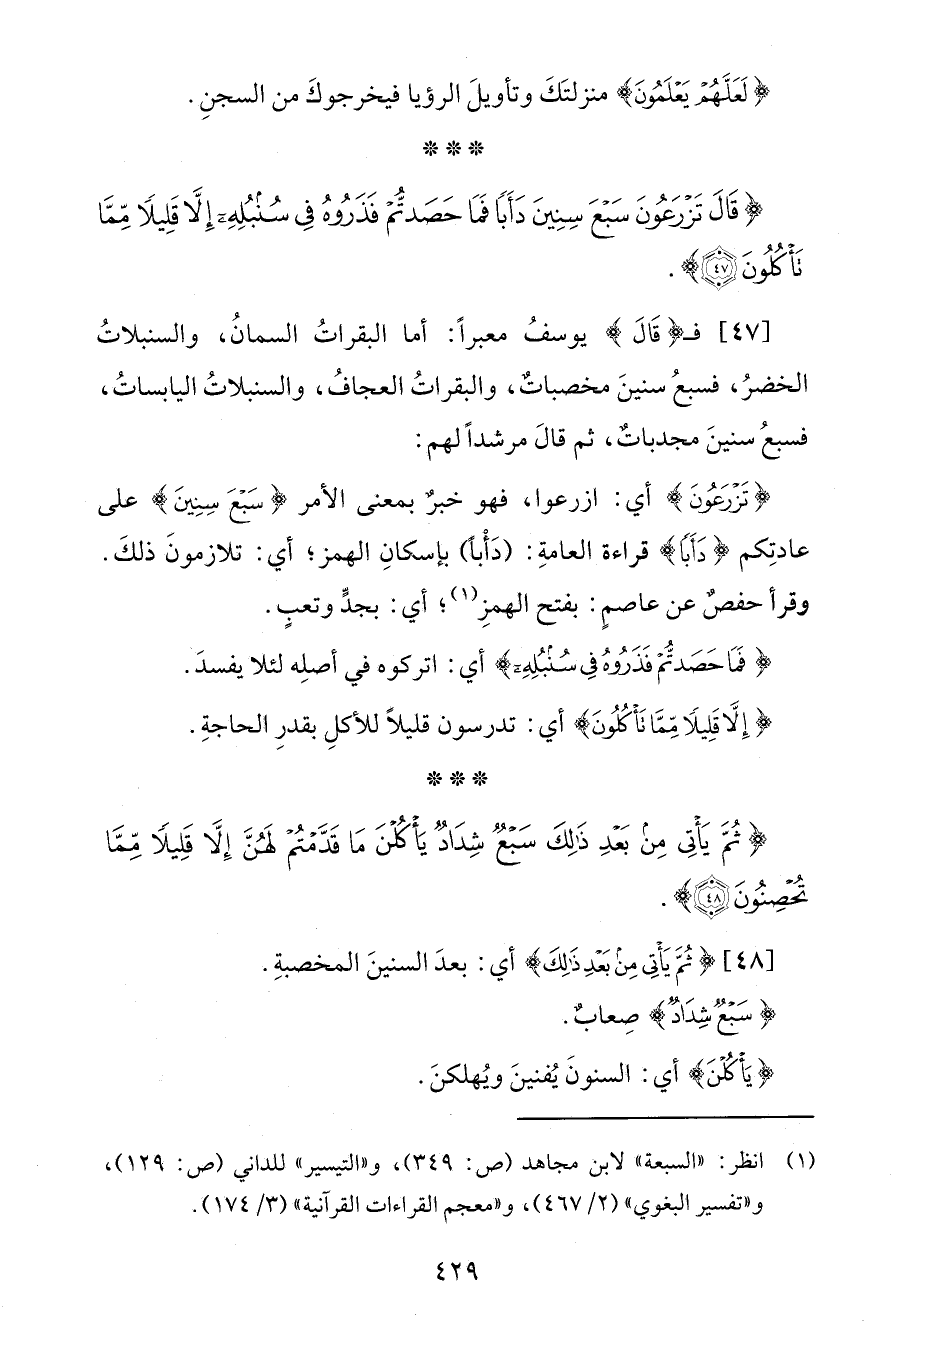 ﴿لَعَلَّهُمْ يَعْلَمُونَ﴾ منزلتَكَ وتأويلَ الرؤيا فيخرجوكَ من السجنِ.
* * *
﴿قَالَ تَزْرَعُونَ سَبْعَ سِنِينَ دَأَبًا فَمَا حَصَدتُّمْ فَذَرُوهُ فِي سُنْبُلِهِ إِلَّا قَلِيلًا مِّمَّا
تَأْكُلُونَ (٤٧)﴾.
[٤٧] فـ﴿قَالَ﴾ يوسفُ معبراً: أما البقراتُ السمانُ، والسنبلاتُ
الخضرُ، فسبعُ سنينَ مخصباتٌ، والبقراتُ العجافُ، والسنبلاتُ اليابساتُ،
فسبعُ سنينَ مجدباتٌ، ثم قالَ مرشداً لهم:
﴿تَزْرَعُونَ﴾ أي: ازرعوا، فهو خبرٌ بمعنى الأمر ﴿سَبْعَ سِنِينَ﴾ على
عادتِكم ﴿دَأَبًا﴾ قراءة العامةِ: (دَأْباً) بإسكانِ الهمز؛ أي: تلازمونَ ذلكَ.
وقرأ حفصٌ عن عاصمٍ: بفتح الهمزِ(١)؛ أي: بجدٍّ وتعبٍ.
﴿فَمَا حَصَدتُّمْ فَذَرُوهُ فِي سُنْبُلِهِ﴾ أي: اتركوه في أصلِه لئلا يفسدَ.
﴿إِلَّا قَلِيلًا مِّمَّا تَأْكُلُونَ﴾ أي: تدرسون قليلاً للأكلِ بقدرِ الحاجةِ.
* * *
﴿ثُمَّ يَأْتِي مِنْ بَعْدِ ذَلِكَ سَبْعٌ شِدَادٌ يَأْكُلْنَ مَا قَدَّمْتُمْ لَهُنَّ إِلَّا قَلِيلًا مِّمَّا
تُحْصِنُونَ (٤٨)﴾.
[٤٨] ﴿ثُمَّ يَأْتِي مِنْ بَعْدِ ذَلِكَ﴾ أي: بعدَ السنينَ المخصبةِ.
﴿سَبْعٌ شِدَادٌ﴾ صِعابٌ.
﴿يَأْكُلْنَ﴾ أي: السنونَ يُفنينَ ويُهلكنَ.
(١) انظر: «السبعة» لابن مجاهد (ص: ٣٤٩)، و«التيسير» للداني (ص: ١٢٩)،
و«تفسير البغوي» (٢/ ٤٦٧)، و«معجم القراءات القرآنية» (٣/ ١٧٤).
٤٢٩